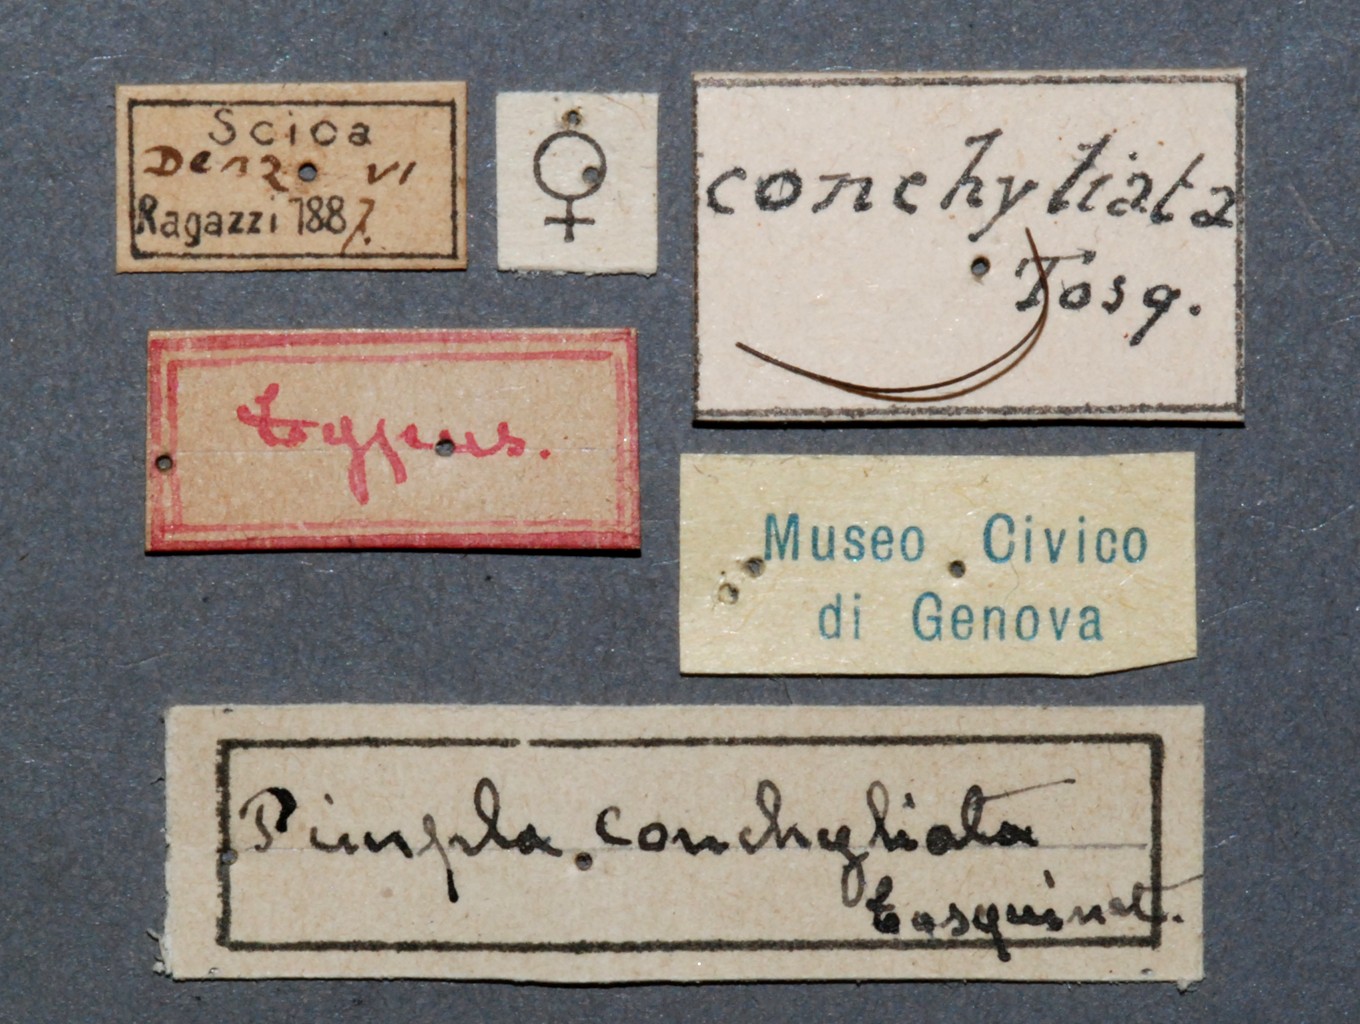 Scioa
Denz VI
Ragazzi 1887.
♀
conchyliata
Tosq.
Typus.
Museo Civico
di Genova
Pimpla conchyliata
Tosquinet.